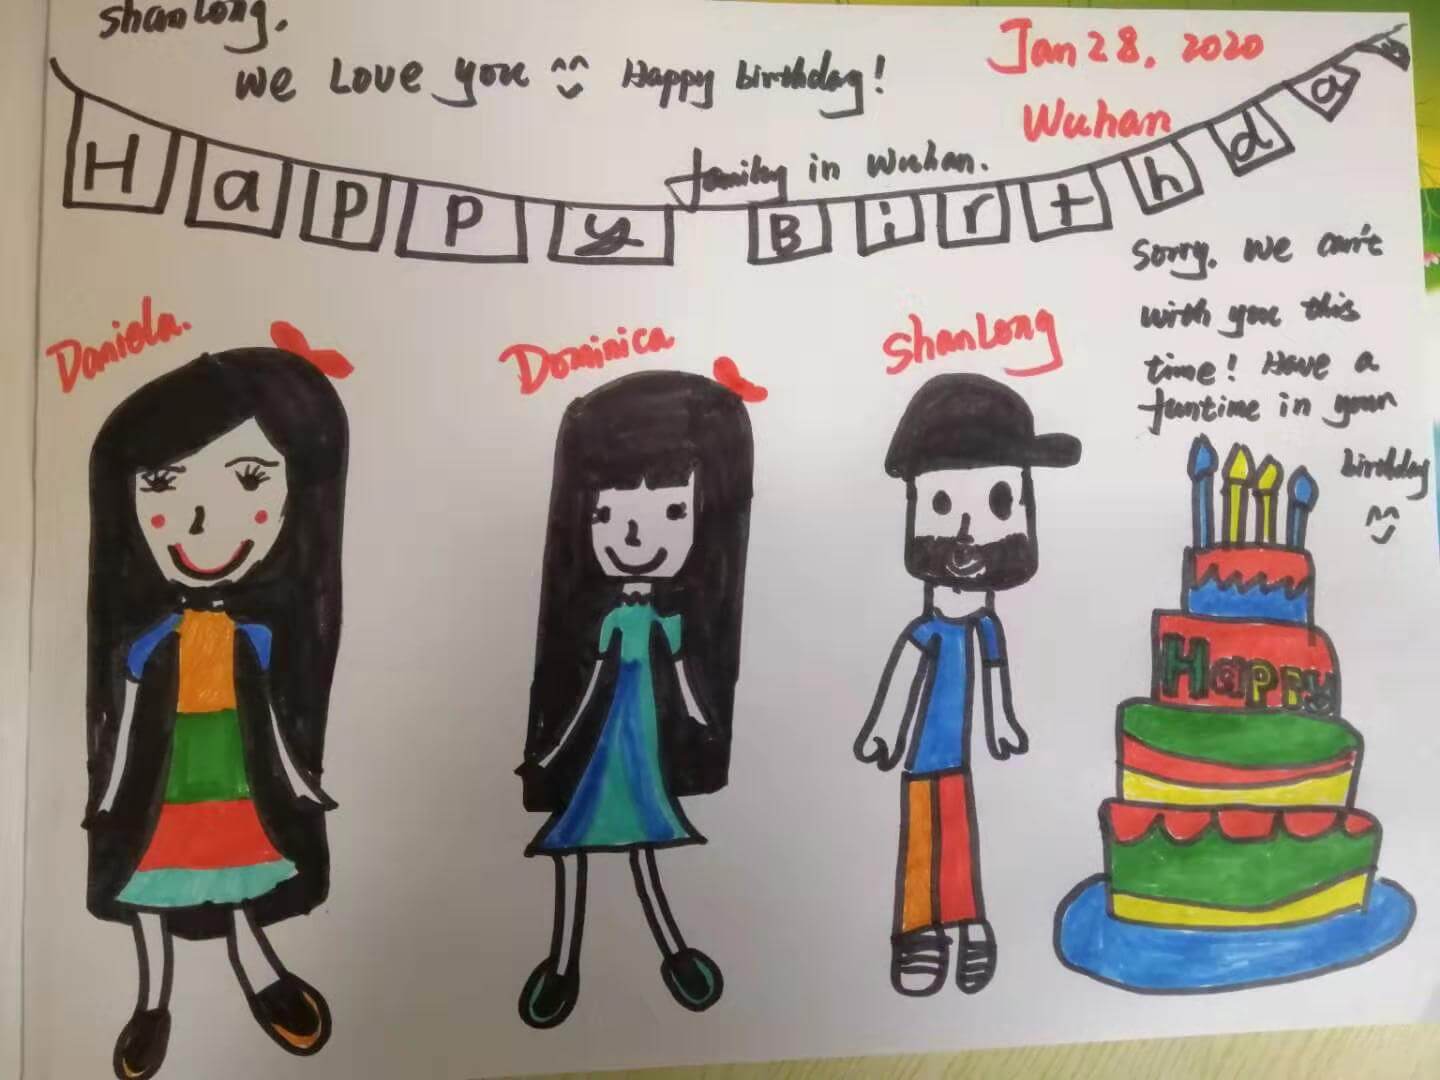 ShanLong.
We Love you Happy birthday!
Jan 28. 2020
Wuhan
family in Wuhan.
Happy Birthday
Sorry. We can't
with you this
time! Have a
funtime in your
birthday
Daniela.
Dominica
ShanLong
Happy